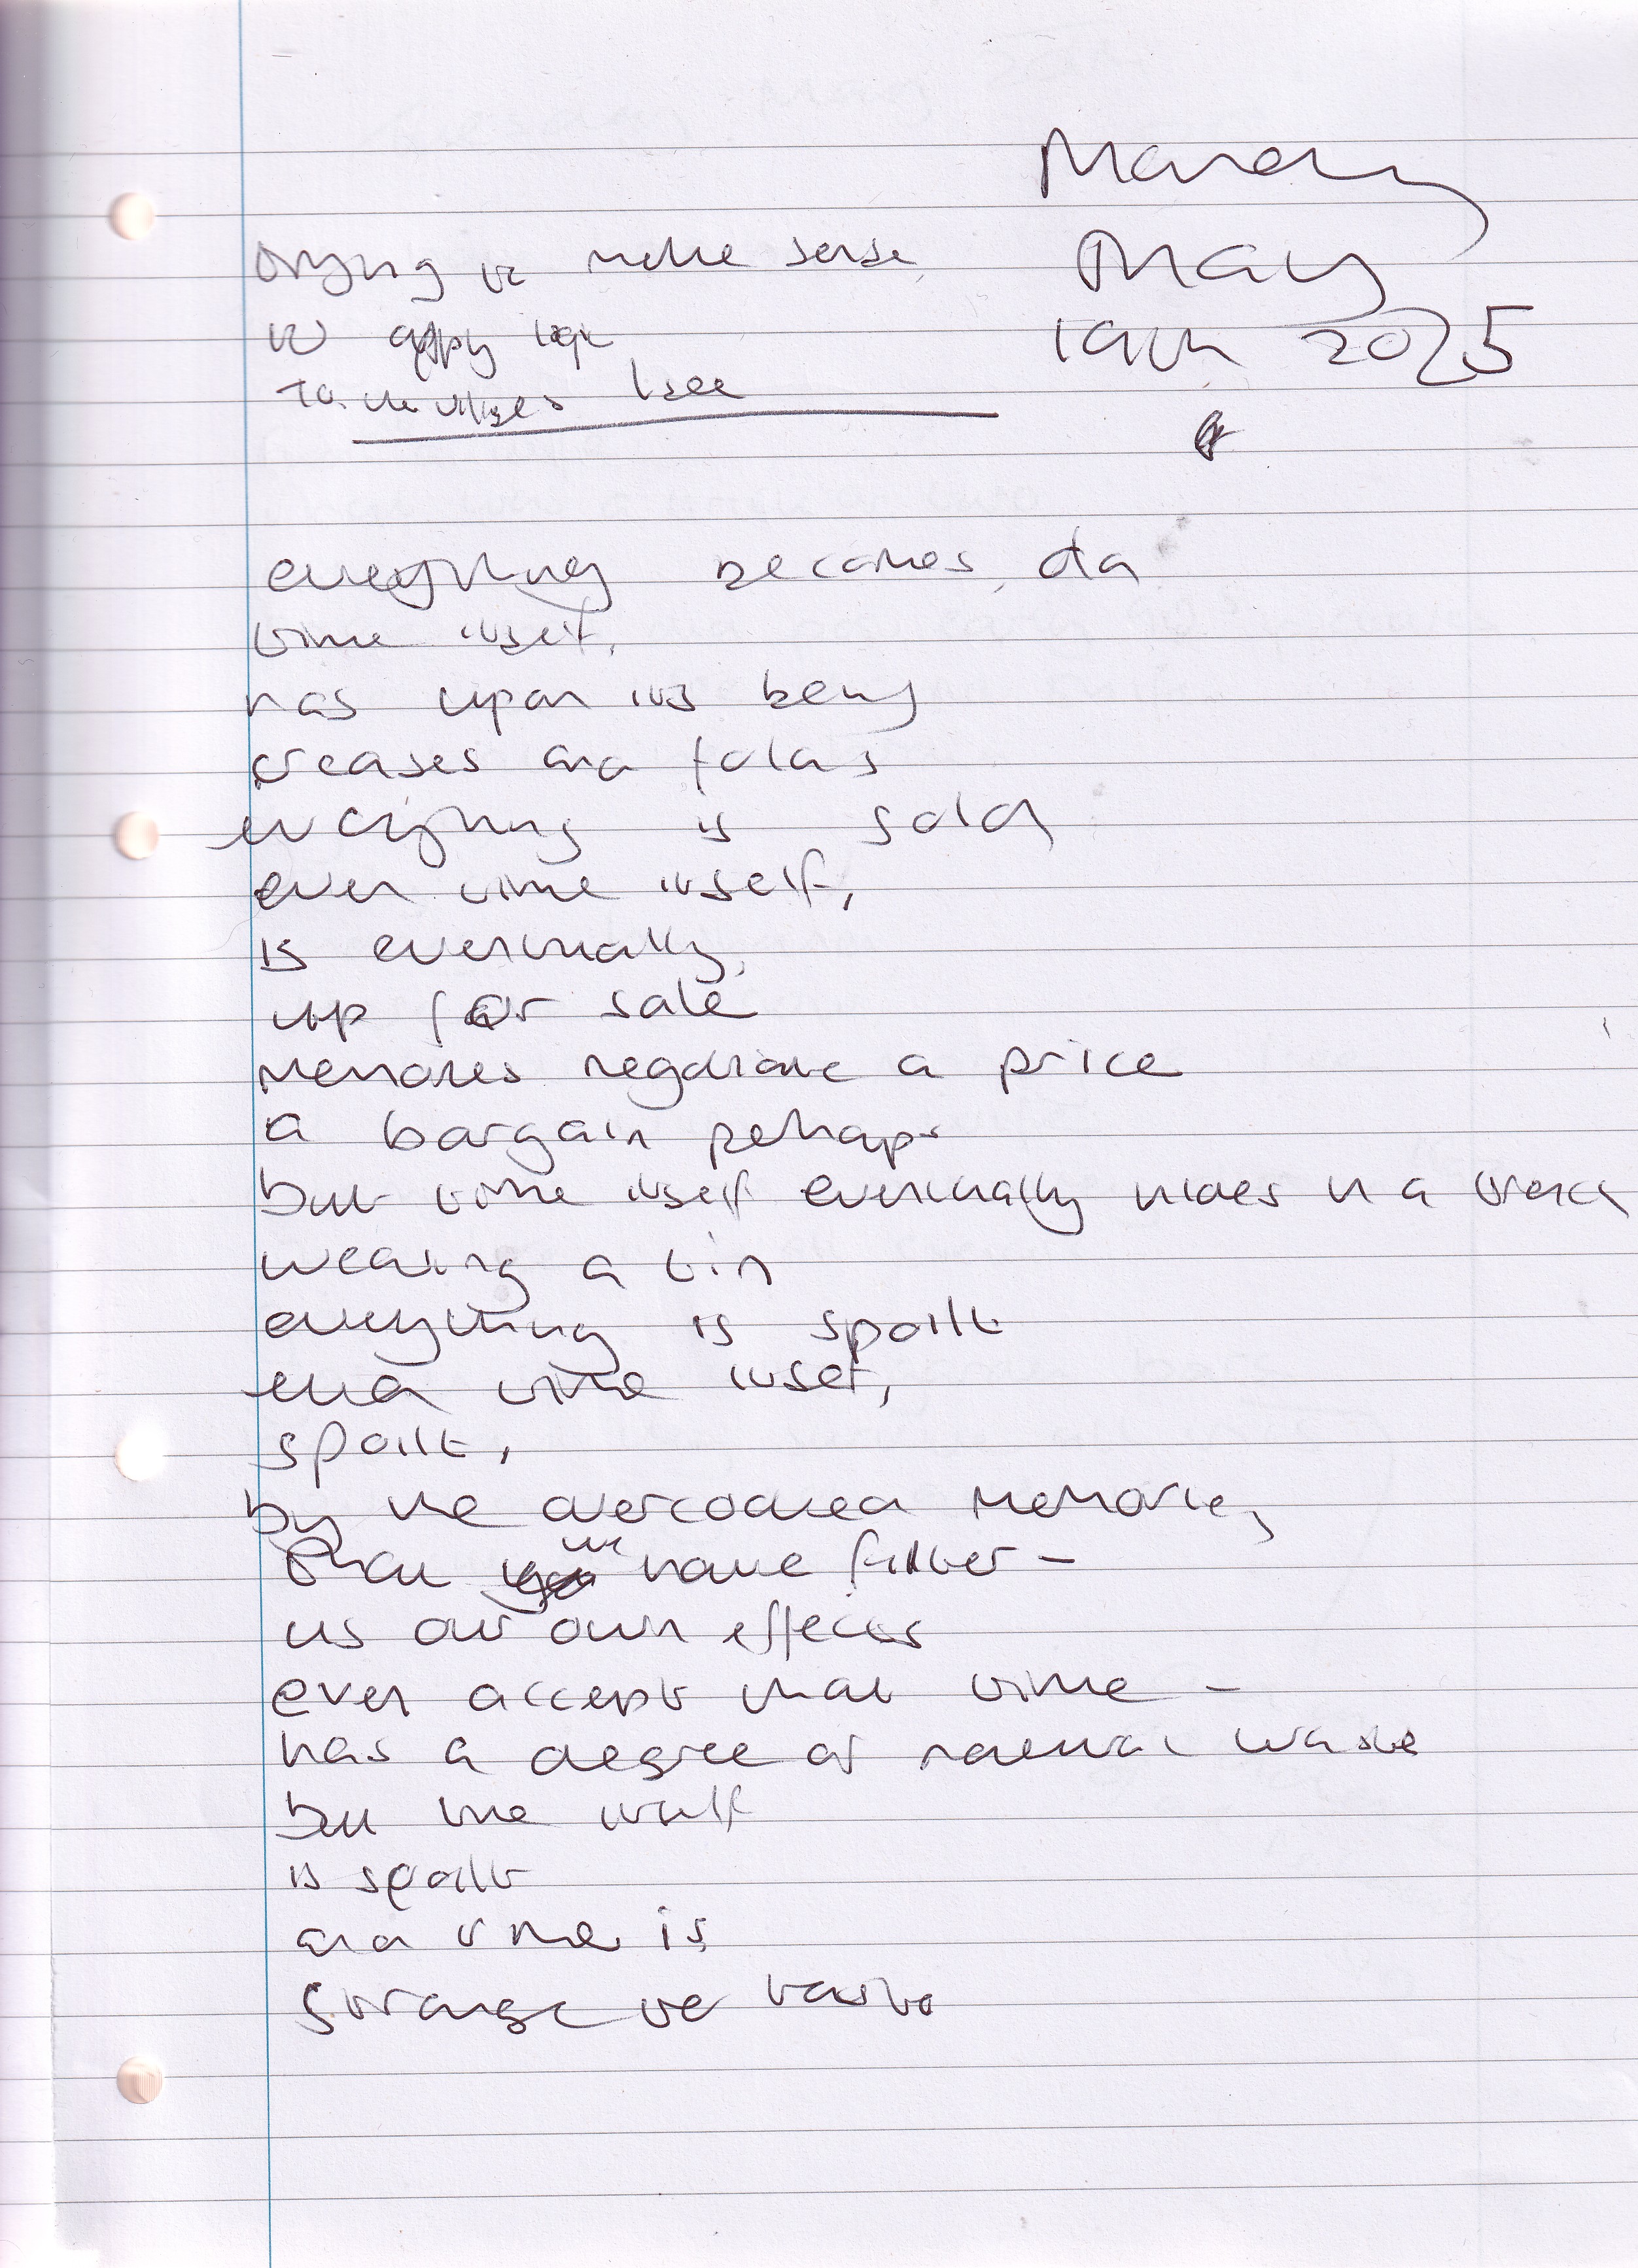 Monday
May
19th 2025
trying to make sense
to apply logic
to the villages I see
everything becomes old
time itself,
has upon its being
creases and folds
everything is sold
even time itself,
is eventually,
up for sale
memories negotiate a price
a bargain perhaps
but time itself eventually hides in a
wearing a tin
everything is spoilt
and time itself,
spoilt,
by the overcooked memories
that we have filter -
us our own effects
even accept that time -
has a degree of natural waste
but time itself
is spoilt
and time is
strange to taste